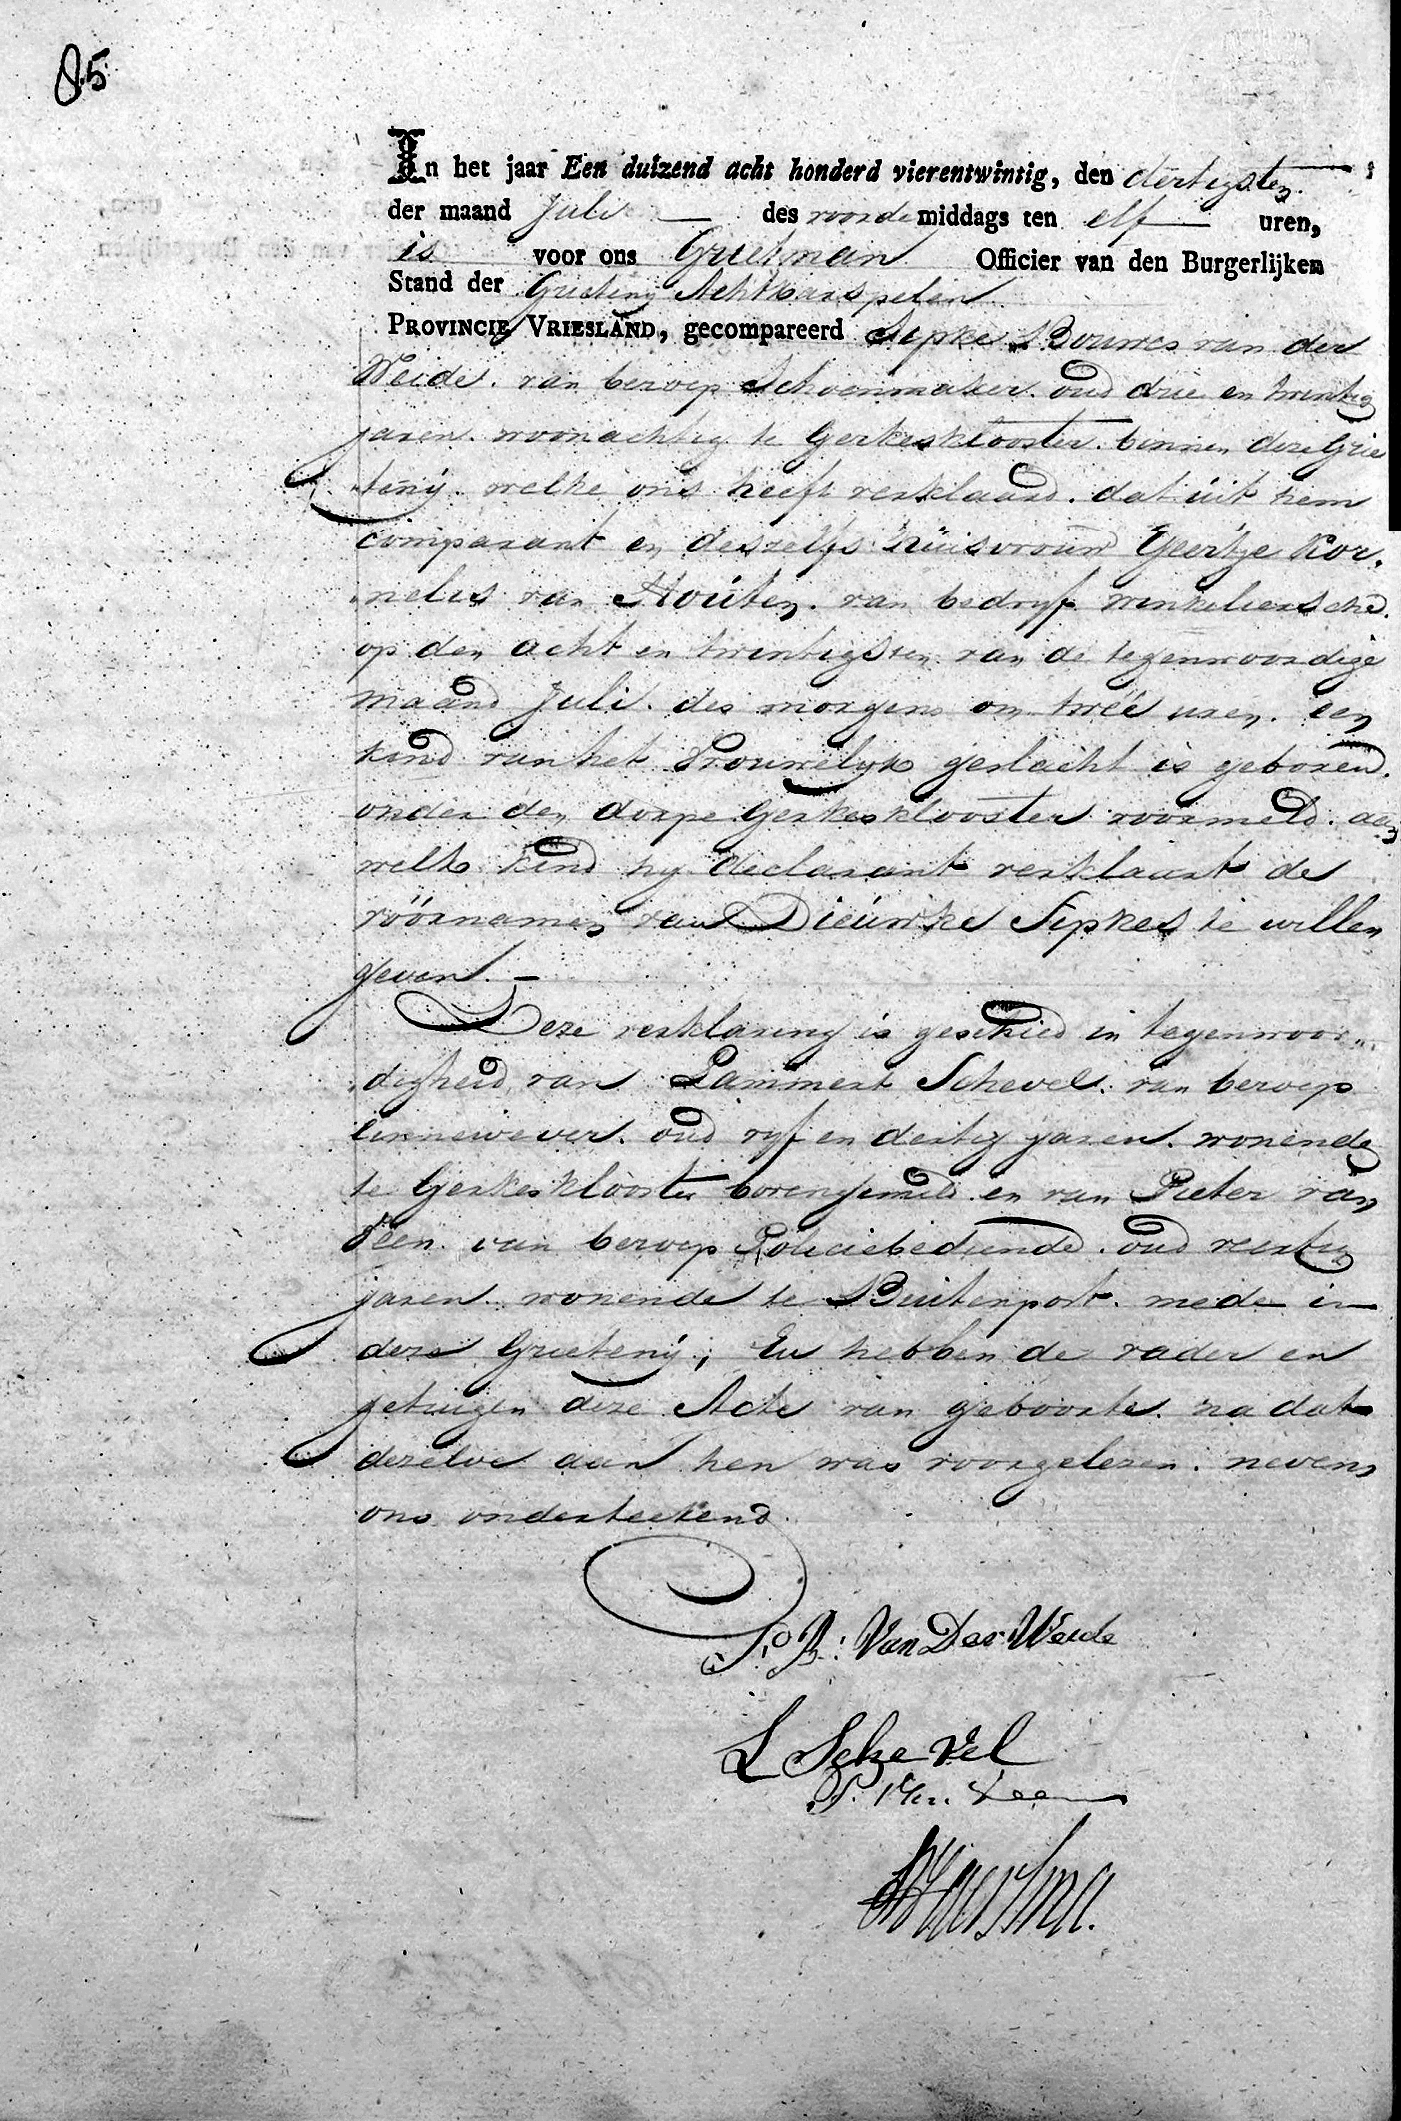 85
In het jaar Een duizend acht honderd vierentwintig, den dertigsten
der maand Juli des voorde middags ten elf uren,
is voor ons Grietman Officier van den Burgerlijken
Stand der Grieteny Achtkarspelen
PROVINCIE VRIESLAND, gecompareerd Sipke Bouwes van der
Weide. van beroep Schoenmaker. oud drie en twintig
jaren. woonachtig te Gerkesklooster. binnen deze Grie
"tenij. welke ons heeft verklaard. dat uit hem
comparant en deszelfs huisvrouw Geertje Kor,
"nelis van Houten. van bedryf winkeliersche.
op den acht en twintigsten van de tegenwoordige
maand Juli. des morgens om twee uren. een
kind van het Vrouwelyk geslacht is geboren.
onder den dorpe Gerkesklooster voormeld. aan
welk kind hy declarant verklaart de
voornamen van Dieuwke Sipkes te willen
geven. —
Deze verklaring is geschied in tegenwoor„
"digheid van Lammert Schevel. van beroep
linnewever. oud vyf en dertig jaren. wonende
te Gerkesklooster bovengemeld. en van Pieter van
Veen. van beroep Policiebediende. oud veertig
jaren. wonende te Buitenpost. mede in
deze Grietenij; En hebben de vader en
getuigen deze Acte van geboorte. na dat
dezelve aan hen was voorgelezen. nevens
ons onderteekend.
S. B: Van Der Weide
L Schevel
P. Van Veen